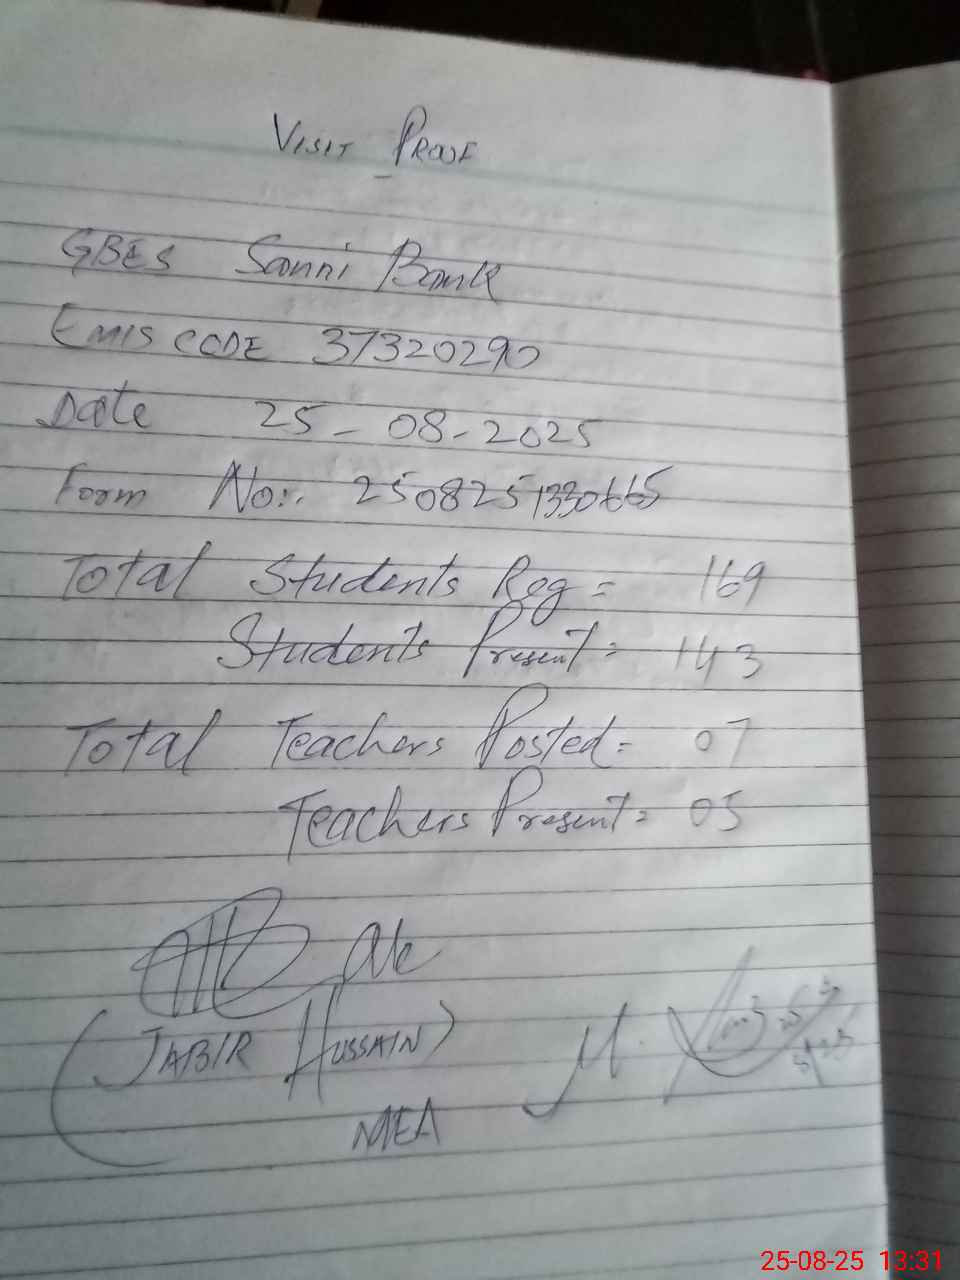 VISIT PROOF
GBES Sanni Bank
EMIS CODE 37320290
Date 25-08-2025
Form No:. 250825133066​5
Total Students Reg = 169
Students Present = 143
Total Teachers Posted = 07
Teachers Present = 05
(JABIR HUSSAIN)
MEA
M.
25-08-25 13:31